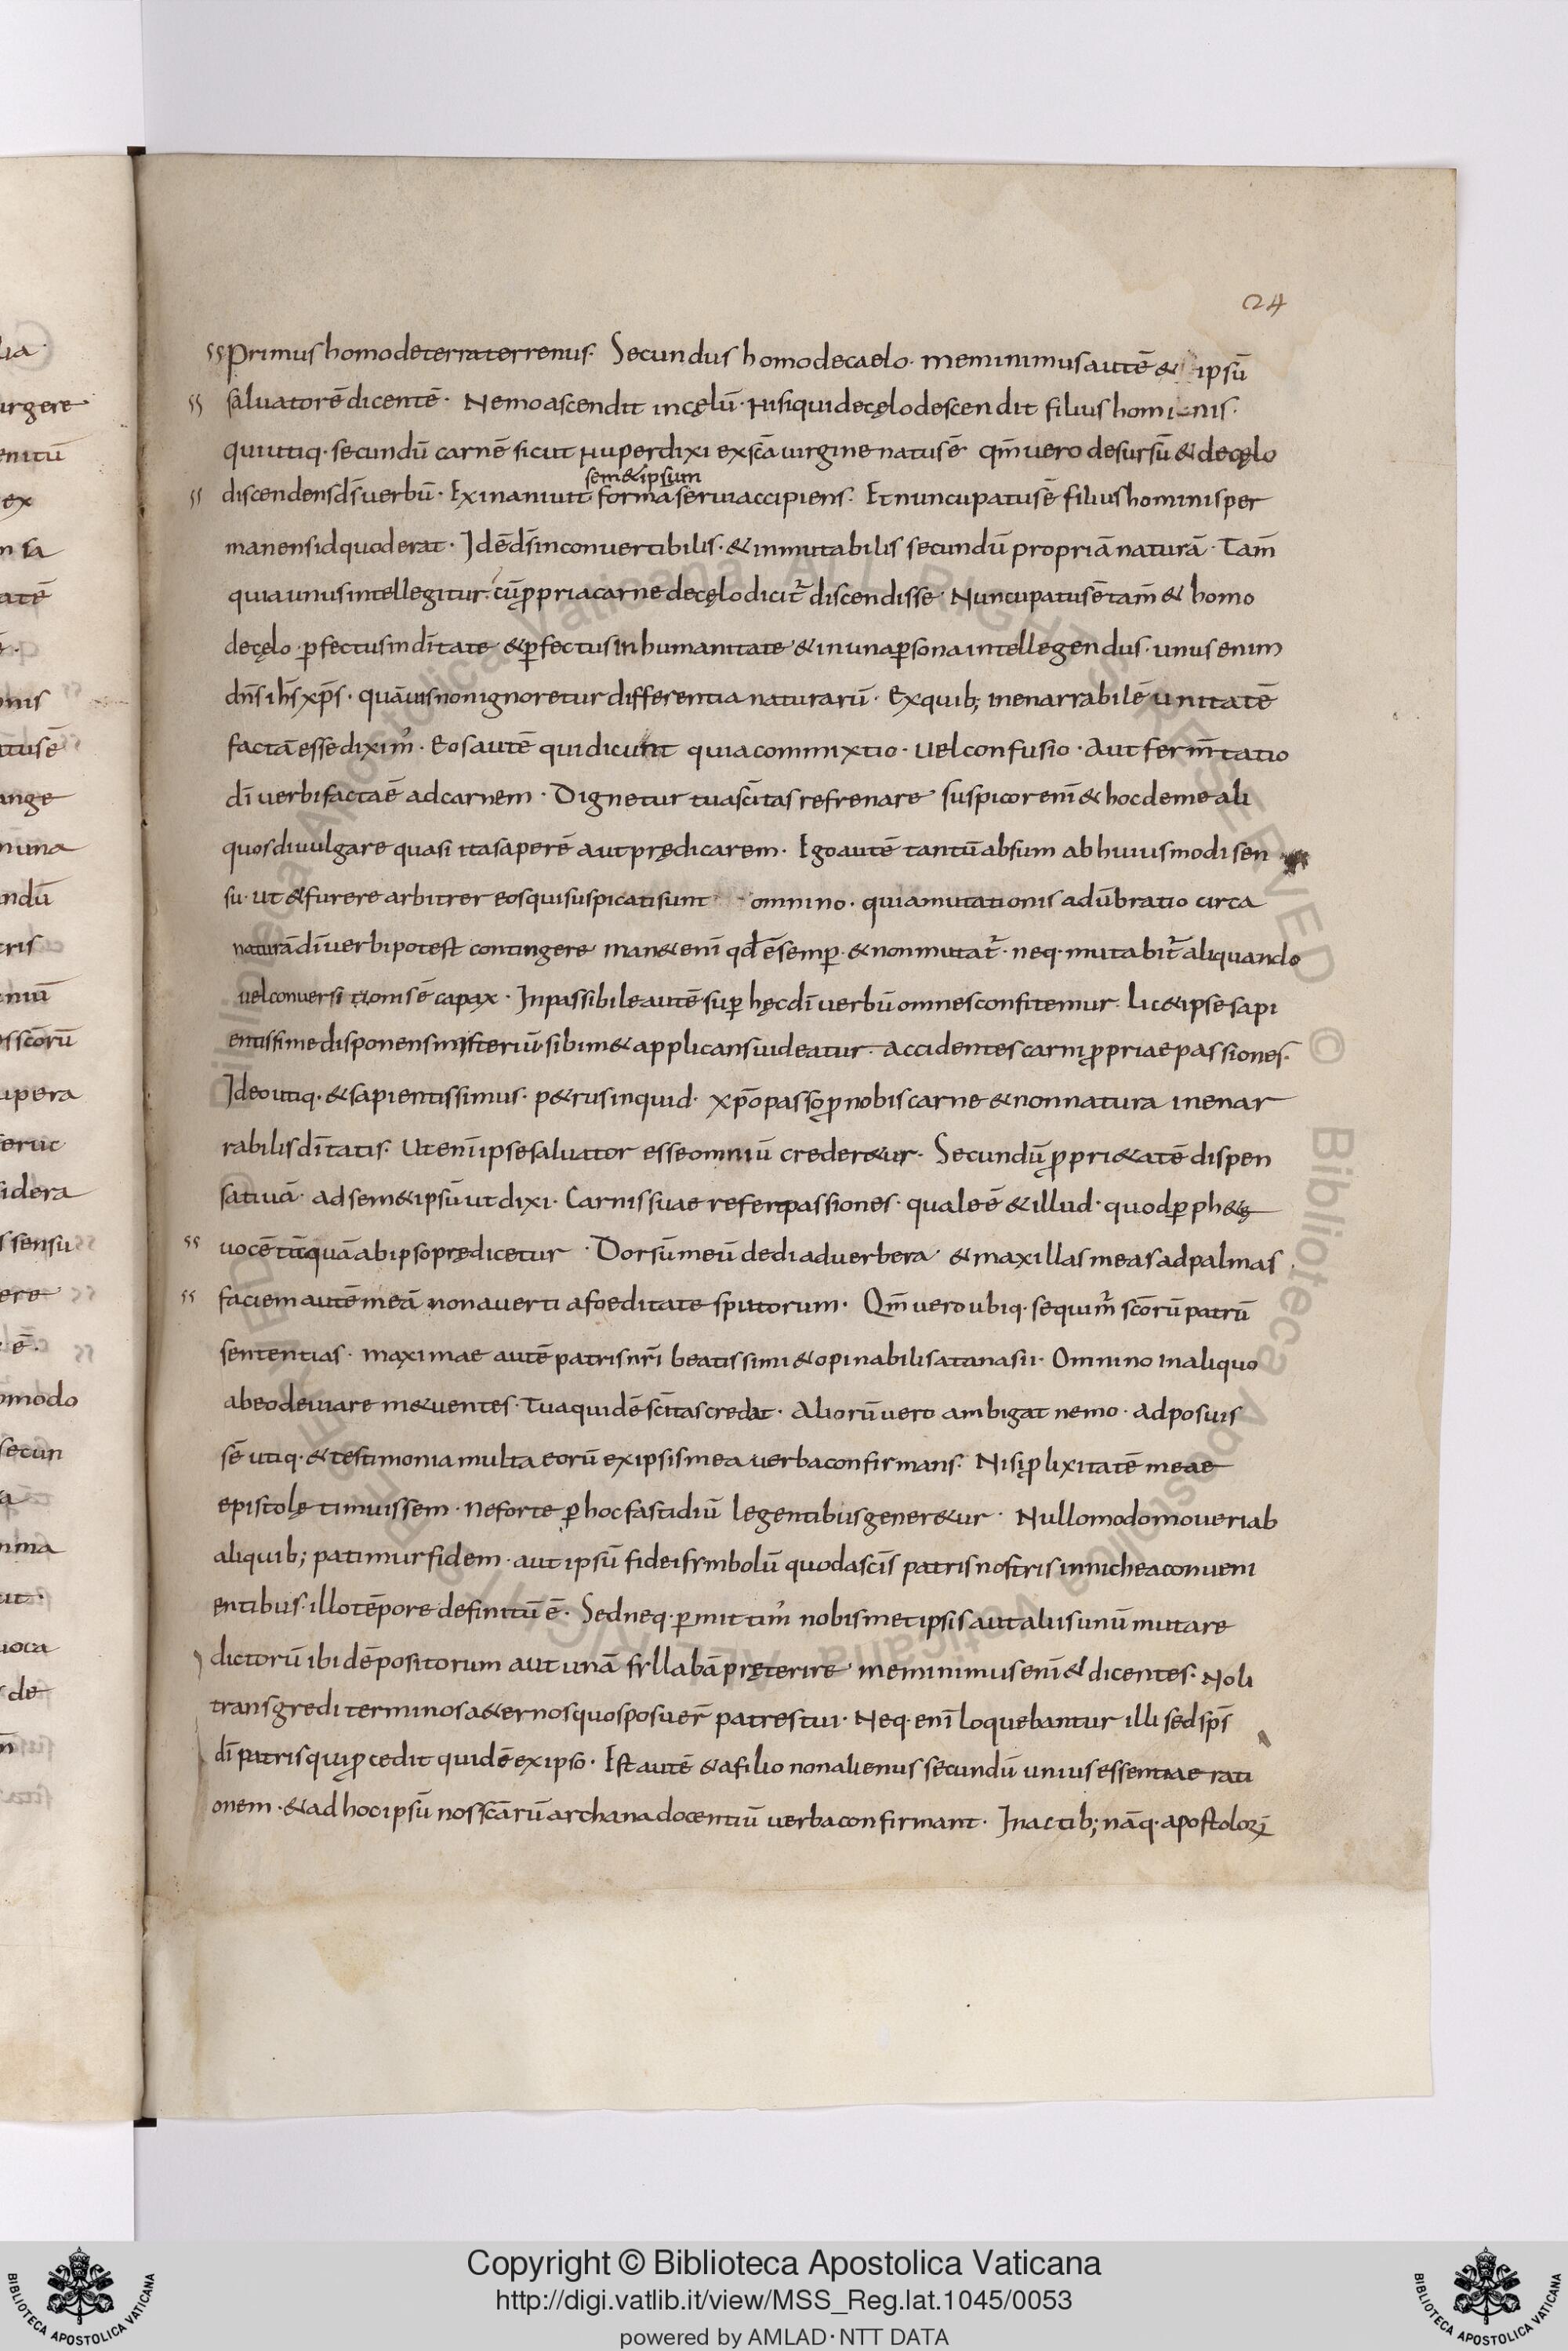 24
Primus homo de terra terrenus· Secundus homo de caelo· meminimus autē & ipsū
saluatorē dicentē· Nemo ascendit in cęlū· nisi qui de cęlo descendit filius hominis·
qui utiq· secundū carnē sicut nuper dixi ex scā uirgine natus ē qm̄ uero desursū & de cęlo
sem&ipsum
discendens ds̄ uerbū· Exinaniuit forma serui accipiens· Et nuncupatus ē filius hominis per
manens id quod erat· Idē ds̄ inconuertibilis· & inmutabilis secundū propriā naturā· Tam̄
quia unus intellegitur· cū ꝓpria carne de cęlo dicit̄ discendisse· Nuncupatus ē tam̄ & homo
de cęlo· ꝑfectus in dītate & ꝑfectus in humanitate & in una ꝑsona intellegendus· unus enim
dn̄s ih̄s xp̄s· quāuis non ignoretur differentia naturarū· Ex quib; inenarrabilē unitatē
factā esse dixim̓· Eos autē qui dicunt quia commixtio· uel confusio· Aut ferm̄tatio
dī uerbi facta ē ad carnem· Dignetur tua sc̄itas refrenare suspicor enī & hoc de me ali
quos diuulgare quasi ita saperē aut prędicarem· Ego autē tantū absum ab huius modi sen
su· ut & furere arbitrer eos qui suspicati sunt omnino· quia mutationis adūbratio circa
naturā dī uerbi potest contingere man& enī qd̄ ē semꝑ· & non mutat̄· neq· mutabit̄ aliquando
uel conuersitionis ē capax· Inpassibile autē suꝑ hęc dī uerbū omnes confitemur· Lic& ipse sapi
entissime disponens misteriū· sibim& applicans uideatur· accidentes carni ꝓpriae passiones·
Ideo utiq· & sapientissimus· p&rus inquid· xp̄o passo ꝓ nobis carne & non natura inenar
rabilis dītatis· Ut enī ipse saluator esse omniū creder&ur· Secundū ꝓpri&atē dispen
satiuā· ad sem&ipsū ut dixi· Carnis suae refert passiones· quale ē & illud· quod ꝑ ph&ę
uocē tāquā ab ipso prędicetur· Dorsū meū dedi ad uerbera & maxillas meas ad palmas·
faciem autē meā non auerti a foeditate sputorum· Qm̄ uero ubiq· sequim̄ sc̄orū patrū
sententias· maximae autē patris nr̄i beatissimi & opinabilis atanasii· Omnino in aliquo
ab eo deuiare m&uentes· Tua quidē sc̄itas credat· Aliorū uero ambigat nemo· adposuis
sē utiq· & testimonia multa eorū ex ipsis mea uerba confirmans· Nisi ꝓlixitatē meae
epistolę timuissem· ne forte ꝑ hoc fastidiū legentibus gener&ur· Nullo modo moueri ab
aliquib; patimur fidem· aut ipsū fidei symbolū quod a sc̄is patris nostris in nichea conueni
entibus· illo tēpore definitū ē· Sed neq· ꝑmittim̓ nobismet ipsis aut aliis unū mutare
dictorū ibidē positorum aut unā syllabā pręterire meminimus enī & dicentes· Noli
transgredi terminos a&ernos quos posuer̄ patres tui· Neq· enī loquebantur illi sed sp̄s
dī patris qui ꝓcedit quidē ex ipso· Est autē & a filio non alienus secundū unius essentiae rati
onem· & ad hoc ipsū nos sc̄arū archana docentiū uerba confirmant· In actib; nāq· apostoloꝝ
Copyright © Biblioteca Apostolica Vaticana
http://digi.vatlib.it/view/MSS_Reg.lat.1045/0053
powered by AMLAD·NTT DATA